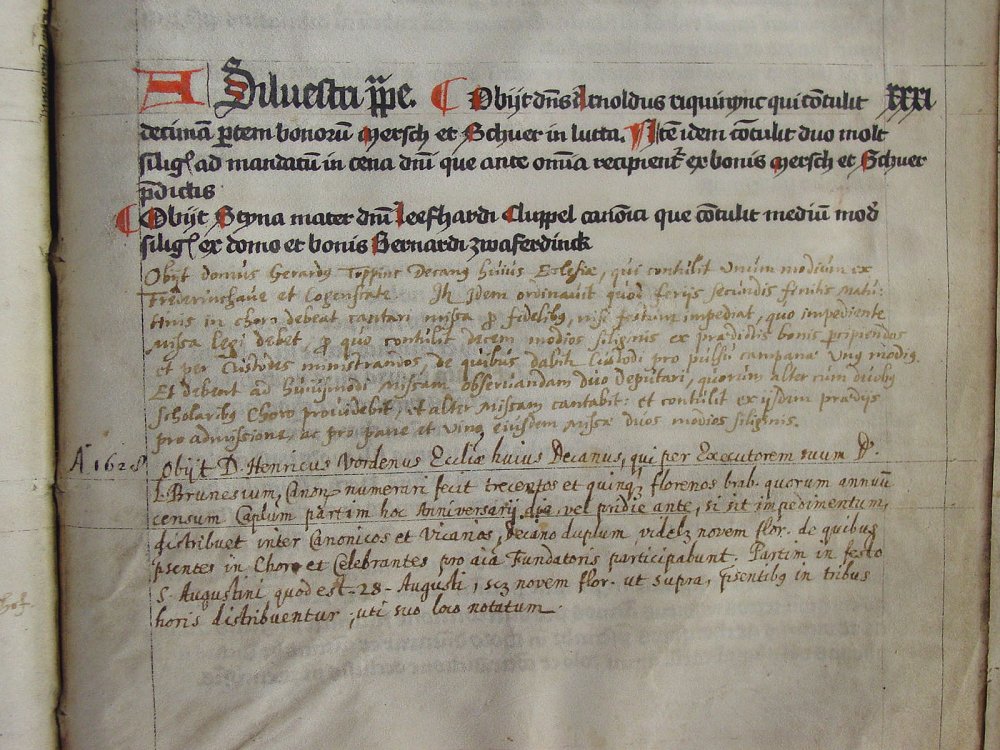 A Siluestri ppe. Obijt dn̄s Arnoldus riquinync qui cōtulit xxxi
decimā ꝑtem bonorū Mersch et Schuer in lutta. Itē idem cōtulit duo molt
siliḡ ad mandatum in cena dn̄i que ante om̄ia recipient̄ ex bonis Mersch et Schuer
p̄dictis
Obijt Styna mater dn̄i Leefhardi Cluppel canōici que cōtulit mediū mod̄
siliḡ ex domo et bonis Bernardi zwaferdinck
Obijt domus Gerardus Toppinc Decanus huius Eclesiæ, qui contulit unum modium ex
Frederinchave et Logenstrate. It idem ordinavit quod ferijs secundis finitis matu:
tinis in choro debeat cantari missa p fidelibus, nisi festum impediat, quo impediente
missa legi debet, p quo contulit decem modios siliginis ex prædictis bonis pcipiendos
et per Custodes ministrandos de quibus dabit Custodi pro pulsu campanæ unus modius.
Et debent ad huiusmodi missam observandam duo Deputari, quorum alter cum duobus
scholaribus choro providebit, et alter missam cantabit: et contulit ex ijsdem prædijs
pro admissione, ac pro pane et vino eiusdem missæ duos modios siliginis.
Aº 1628 Obijt D. Henricus Vordenus Eccliæ huius Decanus, qui per Executorem suum D.
L. Brunesium, Canon. numerari fecit trecentos et quinq florenos brab. quorum annuū
censum Caplum partim hoc Anniversarij die, vel pridie ante, si sit impedimentum,
distribuet inter Canonicos et Vicarios, decano duplum videlz novem flor. de quibus
psentes in Choro et Celebrantes pro aīa Fundatoris participabunt. Partim in festo
S. Augustini, quod est 28 Augusti, scz novem flor. ut supra, psentibus in tribus
horis distribuentur, uti suo loco notatum.